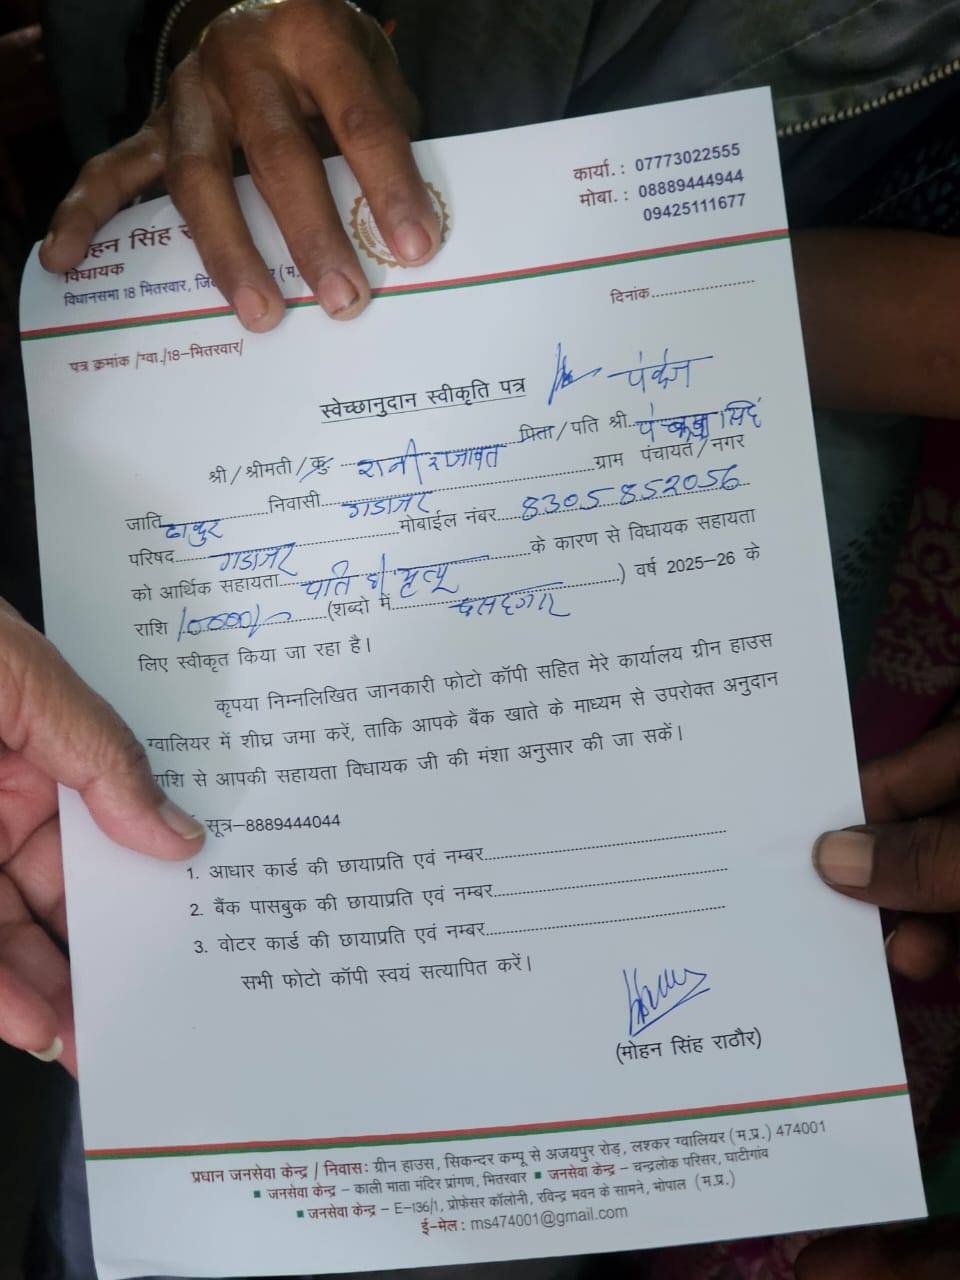 मोहन सिंह
विधायक
विधानसभा 18 भितरवार,
कार्या. : 07773022555
मोबा. : 08889444944
09425111677
दिनांक....................
पत्र क्रमांक /ग्वा./18–भितरवार/
स्वेच्छानुदान स्वीकृति पत्र
पंकज
श्री / श्रीमती / कु. रानी रजावत पिता / पति श्री. सिंह
जाति ठाकुर निवासी गडाजर ग्राम पंचायत / नगर
परिषद गडाजर मोबाईल नंबर 8305852056
को आर्थिक सहायता पति की मृत्यू के कारण से विधायक सहायता
राशि 10000/- (शब्दो में दसहजार) वर्ष 2025–26 के
लिए स्वीकृत किया जा रहा है।
कृपया निम्नलिखित जानकारी फोटो कॉपी सहित मेरे कार्यालय ग्रीन हाउस
ग्वालियर में शीघ्र जमा करें, ताकि आपके बैंक खाते के माध्यम से उपरोक्त अनुदान
राशि से आपकी सहायता विधायक जी की मंशा अनुसार की जा सकें।
सूत्र–8889444044
1. आधार कार्ड की छायाप्रति एवं नम्बर....................
2. बैंक पासबुक की छायाप्रति एवं नम्बर....................
3. वोटर कार्ड की छायाप्रति एवं नम्बर....................
सभी फोटो कॉपी स्वयं सत्यापित करें।
(मोहन सिंह राठौर)
प्रधान जनसेवा केन्द्र / निवास: ग्रीन हाउस, सिकन्दर कम्पू से अजयपुर रोड़, लश्कर ग्वालियर (म.प्र.) 474001
■ जनसेवा केन्द्र – काली माता मंदिर प्रांगण, भितरवार ■ जनसेवा केन्द्र – चन्द्रलोक परिसर, घाटीगांव
■ जनसेवा केन्द्र – E-136/1, प्रोफेसर कॉलोनी, रविन्द्र भवन के सामने, भोपाल (म.प्र.)
ई-मेल : ms474001@gmail.com